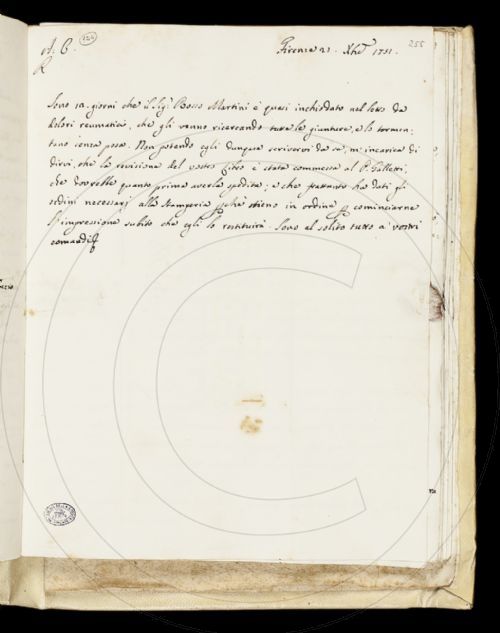 A. C. 224 Firenze 21. Xbre 1751. 255
R
Sono 10. giorni che il Sigr. Bosso Martini è quasi inchiodato nel letto da
dolori reumatici, che gli vanno ricercando tutte le giunture, e lo tormen:
tano senza posa. Non potendo egli dunque scrivervi da se, m'incarica di
dirvi, che la revisione del vostro è stata commessa al P. Galletti,
che dovrebbe quanto prima averla spedita; e che frattanto ha dati gli
ordini necessarj alla Stamperia stieno in ordine p cominciarne
l'impressione subito che egli lo restituirà. Sono al solito tutto a' vostri
comandi